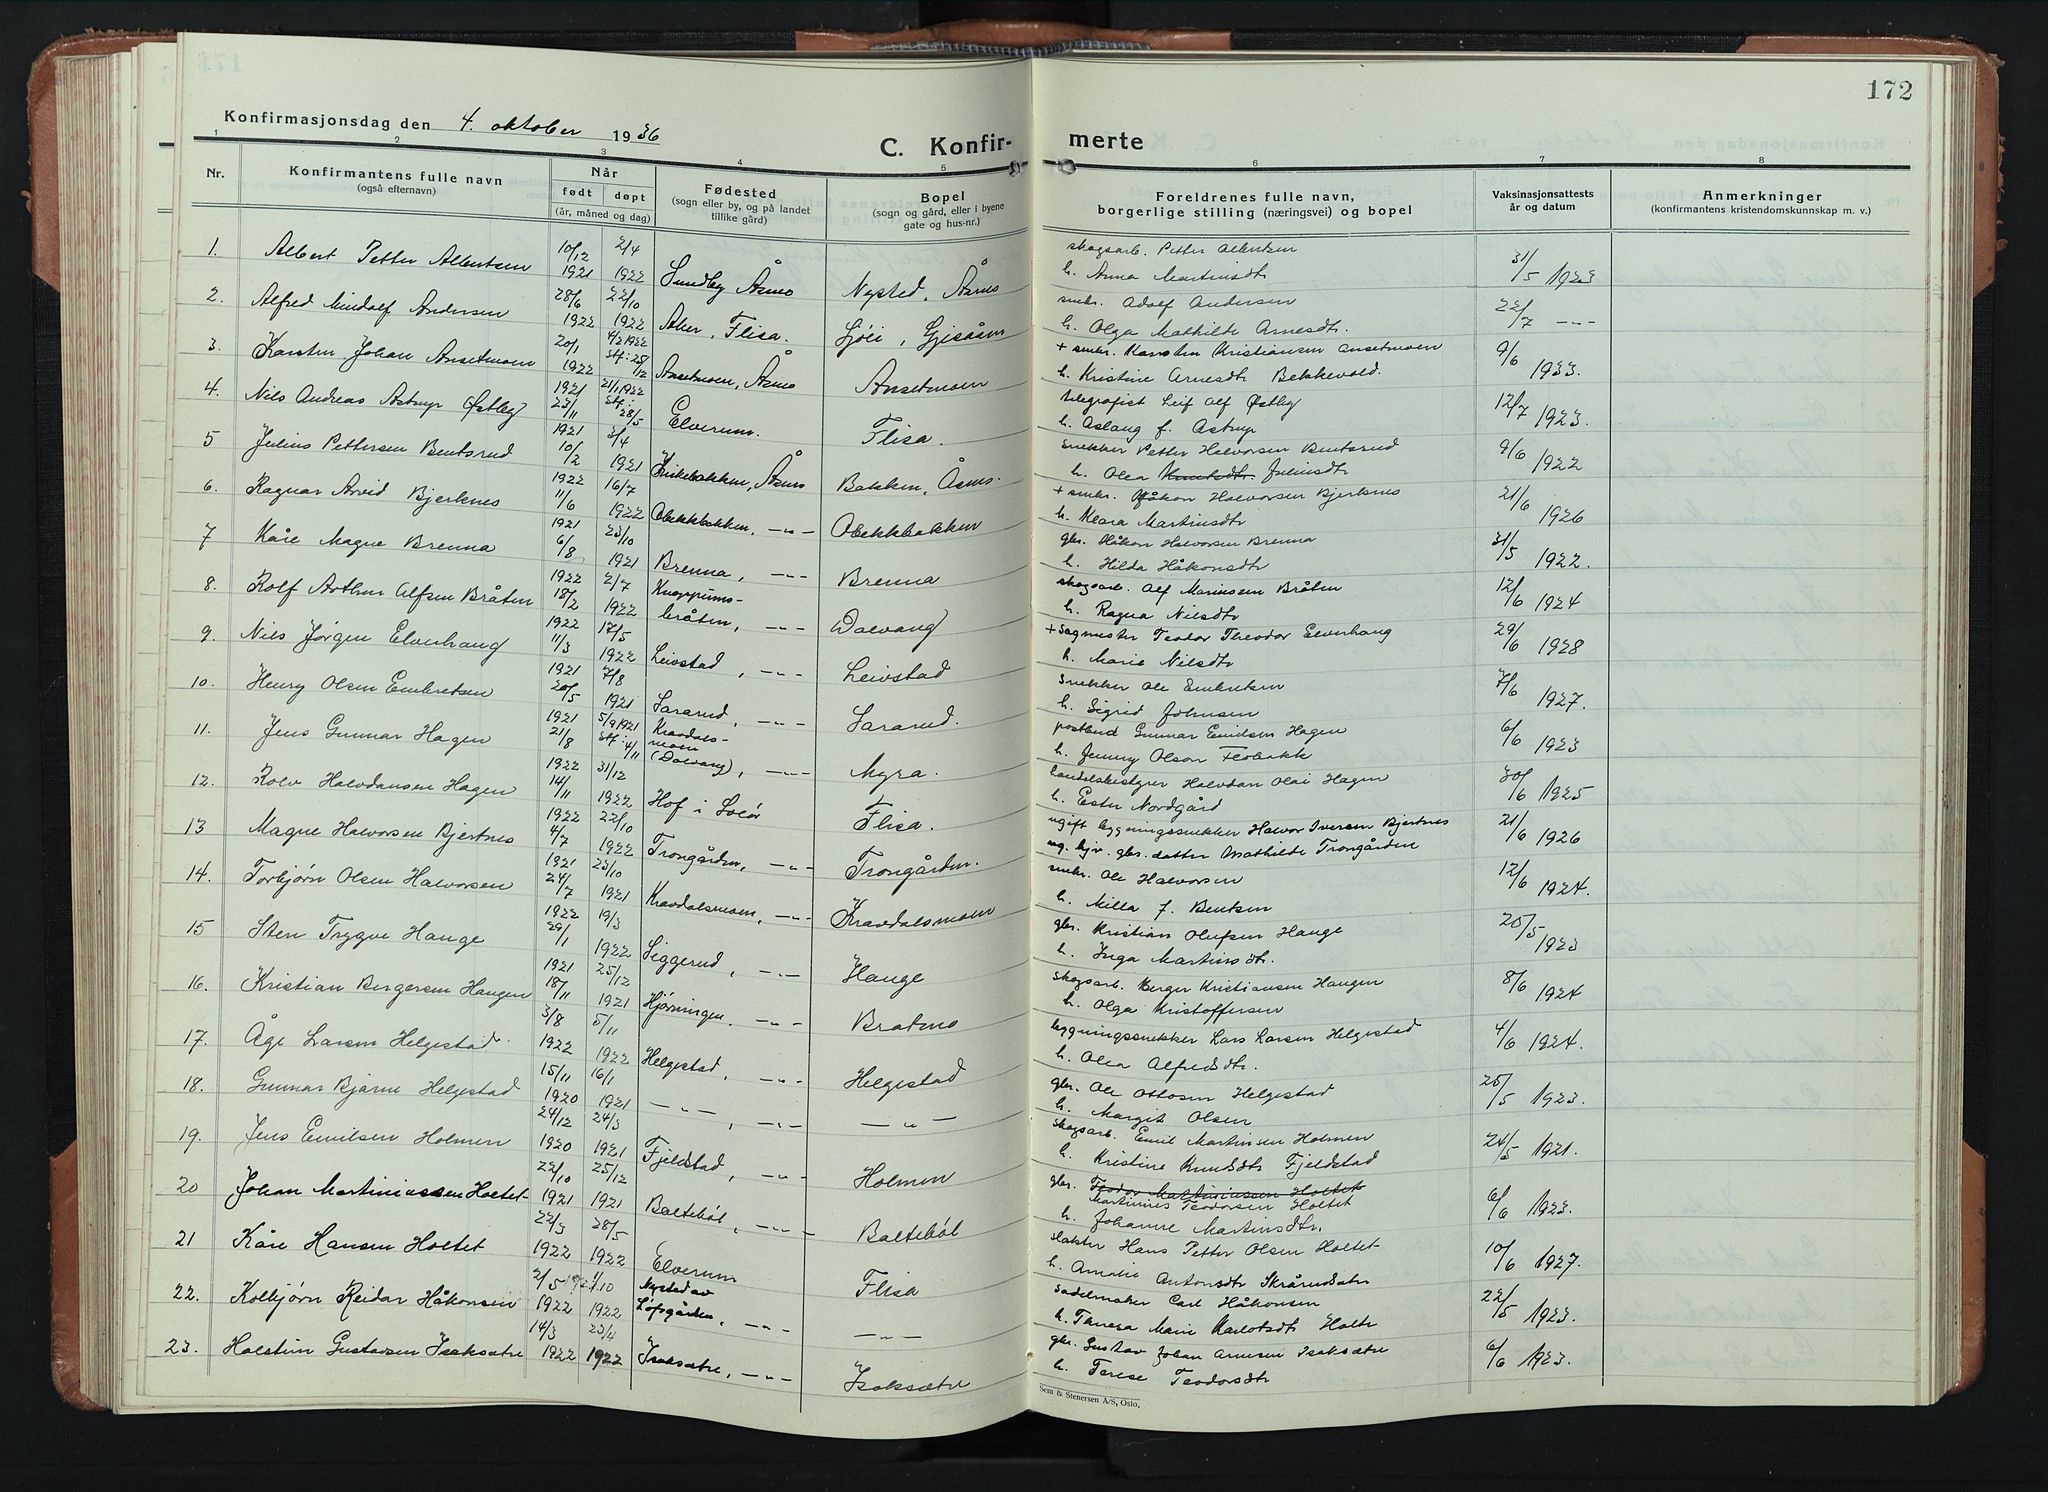 172
Konfirmasjonsdag den 4. oktober 1936
C. Konfir- merte
1 2 3 4 5 6 7 8
Nr.
Konfirmantens fulle navn
(også efternavn)
Når
født døpt
(år, måned og dag)
Fødested
(sogn eller by, og på landet
tillike gård)
Bopel
(sogn og gård, eller i byene
gate og hus-nr.)
Foreldrenes fulle navn,
borgerlige stilling (næringsvei) og bopel
Vaksinasjonsattests
år og datum
Anmerkninger
(konfirmantens kristendomskunnskap m. v.)
1. Albert Petter Albertsen 10/12 1921 2/4 1922 Sundby Åsmo Nysted, Åsmo
skogsarb. Petter Albertsen
h. Anna Martinsdtr 31/5 1923
2. Alfred Mindolf Andersen 28/6 1922 22/10 1922 Aker, Flisa.
smbr. Adolf Andersen
h. Olga Mathilde Arnesdtr. 22/7 -"-
3. Karsten Johan Ansetmoen 20/1 1922 4/2 1922 stf: 25/12 Ansetmoen, Åsmo Ansetmoen
+ smbr. Karsten Kristiansen Ansetmoen
h. Kristine Arnesdtr Bekkevold. 9/6 1933.
4. Nils Andreas Astrup Østby 1921 23/11 21/1 1922 stf: 28/5 Elverum. Flisa.
telegrafist Leif Alf Østby
h. Aslaug f. Astrup 12/7 1923.
5 Julius Pettersen Bentsrud 1921 10/2 3/4 1921 Kirkebakken, Åsnes Bakken, Åsnes.
snekker Petter Halvorsen Bentsrud
h. Olea Knutsdtr. Juliusdtr 9/6 1922
6. Ragnar Arvid Bjerknes 1922 11/6 16/7 1922 Obekkbakken, -"- Obekkbakken
+ smbr. Håkon Halvorsen Bjerknes
h. Klara Martinsdtr 21/6 1926
7 Kåre Magne Brenna 1921 6/8 23/10 1921 Brenna, -"- Brenna
gbr. Håkon Halvorsen Brenna
h. Hilda Håkonsdtr 31/5 1922.
8. Rolf Arthur Alfsen Bråten 1922 18/2 2/7 1922 Knappums-
bråten, -"- Dalvang
skogsarb. Alf Marinsen Bråten
h. Ragna Nilsdtr 12/6 1924
9. Nils Jørgen Elverhaug 1922 11/3 17/5 1922 Leivstad, -"- Leivstad
+ sagmester Teodor Theodor Elverhaug
h. Marie Nilsdtr 29/6 1928
10. Henry Olsen Embretsen 1921 20/5 7/8 1921 Sararud, -"- Sararud.
snekker Ole Embretsen
h. Sigrid Johnsen 7/6 1927.
11. Jens Gunnar Hagen 1921 21/8 5/9 1921 stf: 4/11 Kravdals-
moen
(Dalvang), -"- Myra.
postbud Gunnar Emilsen Hagen
h. Jenny Olson 6/6 1923
12. Rolv Halvdansen Hagen 1922 14/11 31/12 1922 Hof i Solør Flisa.
handelsbestyrer Halvdan Olai Hagen
h. Ester Nordgård 30/6 1925
13 Magne Halvorsen Bjertnes 1922 4/7 22/10 1922 Trongården, -"- Trongården.
ugift bygningssnekker Halvor Iversen Bjertnes
ug. hjv. gbr. datter Mathilde Trongården 21/6 1926
14. Torbjørn Olsen Halvorsen 1921 24/7 23/10 1921 Kravdalsmoen, -"- Kravdalsmoen
smbr. Ole Halvorsen
h. Milla f. Bentsen 12/6 1924.
15 Sten Trygve Hauge 1922 29/1 19/3 1922 Siggerud, -"- Hauge
gbr. Kristian Olufsen Hauge
h. Inga Martinsdtr. 20/5 1923
16. Kristian Bergersen Haugen 1921 18/11 25/12 1921 Hjørningen. -"- Bratmo
skogsarb. Berger Kristiansen Haugen
h. Olga Kristoffersen 8/6 1924
17. Åge Larsen Helgestad 3/8 1922 5/11 1922 Helgestad, -"- Helgestad
bygningssnekker Lars Larsen Helgestad
h. Olea Alfredsdtr. 4/6 1924.
18. Gunnar Bjarne Helgestad 15/11 1920 16/1 1921 -"-, -"- -"-
gbr. Ole Ottosen Helgestad
h. Margit Olsen 25/5 1923.
19. Jens Emilsen Holmen 24/12 1920 24/3 1921 Fjeldstad, -"- Holmen
skogsarb. Emil Martinsen Holmen
h. Kristine Knudsdtr Fjeldstad 24/5 1921.
20 Johan Martiniussen Holtet 22/10 1921 25/12 1921 Baltebøl, -"- Baltebøl
gbr. Teodor Martiniussen Holtet
Martinius Teodorsen Holtet
h. Johanne Martinsdtr. 6/6 1923.
21 Kåre Hansen Holtet 22/3 1922 28/5 1922 Elverum Flisa
slakter Hans Petter Olsen Holtet
h. Amalie Antonsdtr 10/6 1927.
22. Kolbjørn Reidar Håkonsen 2/5 1922 1/10 1922 Nysted av
Løfsgården, -"- -"-
sadelmaker Carl Håkonsen
h. Teresa Marie Karlotsdtr Holte 22/5 1923.
23. Halstein Gustavsen Isaksætre 14/3 1922 23/4 1922 Isaksætre, -"- Isaksætre
gbr. Gustav Johan Arnesen Isaksætre
h. Terese Teodorsdtr 6/6 1923.
Sem & Stenersen A/S, Oslo.